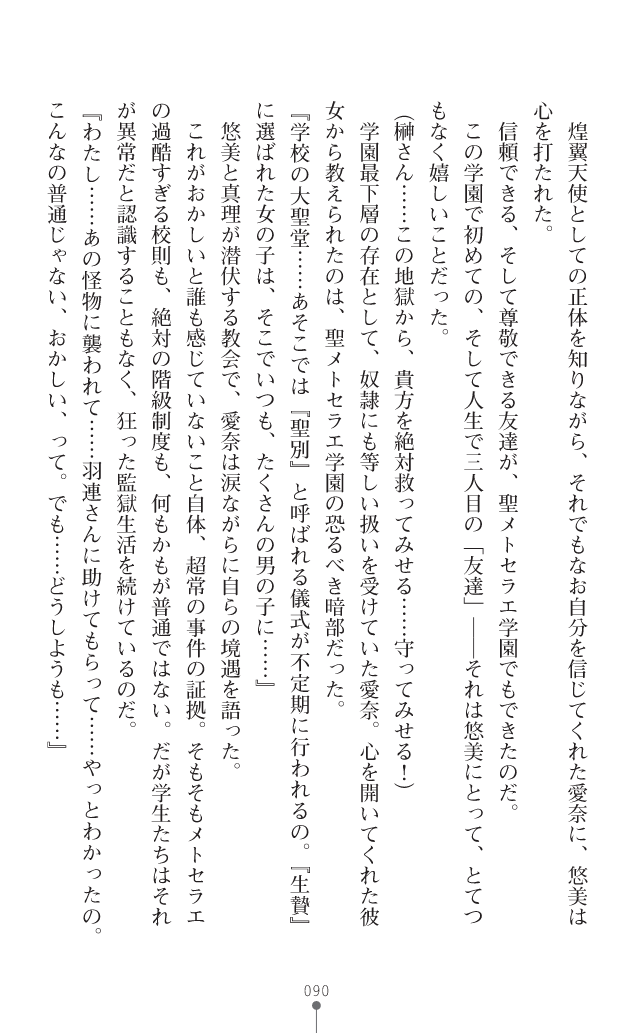 煌翼天使としての正体を知りながら、それでもなお自分を信じてくれた愛奈に、悠美は
心を打たれた。
信頼できる、そして尊敬できる友達が、聖メトセラエ学園でもできたのだ。
この学園で初めての、そして人生で三人目の「友達」――それは悠美にとって、とてつ
もなく嬉しいことだった。
（榊さん……この地獄から、貴方を絶対救ってみせる……守ってみせる！）
学園最下層の存在として、奴隷にも等しい扱いを受けていた愛奈。心を開いてくれた彼
女から教えられたのは、聖メトセラエ学園の恐るべき暗部だった。
『学校の大聖堂……あそこでは『聖別』と呼ばれる儀式が不定期に行われるの。『生贄』
に選ばれた女の子は、そこでいつも、たくさんの男の子に……』
悠美と真理が潜伏する教会で、愛奈は涙ながらに自らの境遇を語った。
これがおかしいと誰も感じていないこと自体、超常の事件の証拠。そもそもメトセラエ
の過酷すぎる校則も、絶対の階級制度も、何もかもが普通ではない。だが学生たちはそれ
が異常だと認識することもなく、狂った監獄生活を続けているのだ。
『わたし……あの怪物に襲われて……羽連さんに助けてもらって……やっとわかったの。
こんなの普通じゃない、おかしい、って。でも……どうしようも……』
090